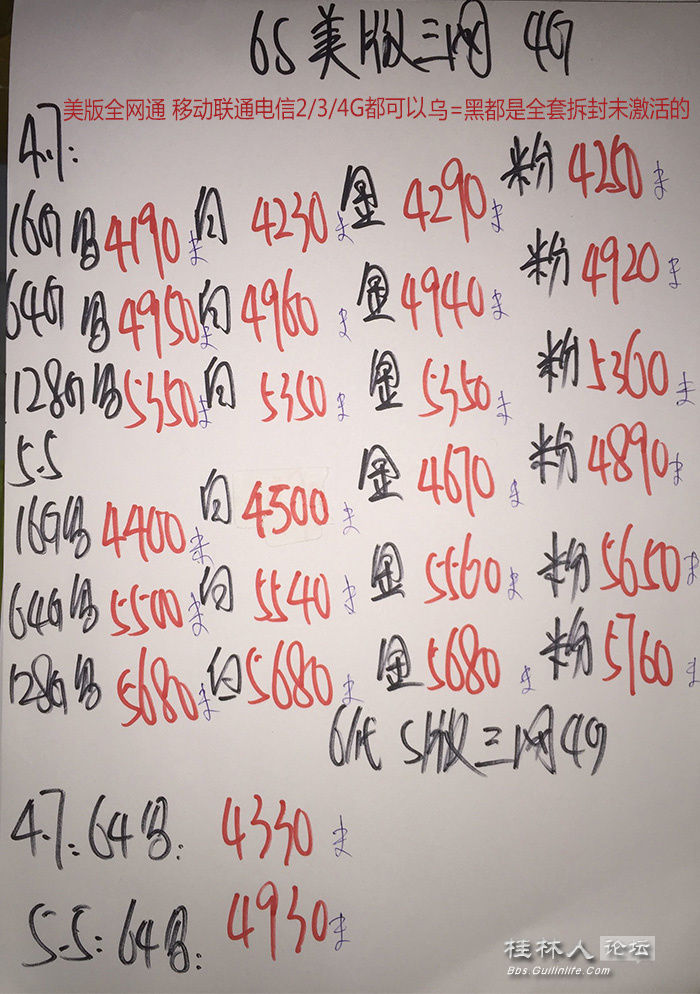 6S美版三网 4G
美版全网通 移动联通电信2/3/4G都可以乌=黑都是全套拆封未激活的
4.7:
16G 乌 4190 白 4230 金 4290 粉 4250
64G 乌 4950 白 4960 金 4940 粉 4920
128G 乌 5350 白 5350 金 5350 粉 5360
5.5
16G 乌 4400 白 4500 金 4670 粉 4890
64G 乌 5500 白 5540 金 5560 粉 5650
128G 乌 5680 白 5680 金 5680 粉 5760
6代 S版三网4G
4.7:64乌: 4330
5.5:64乌: 4930
桂林人论坛
Bbs.Guilinlife.Com